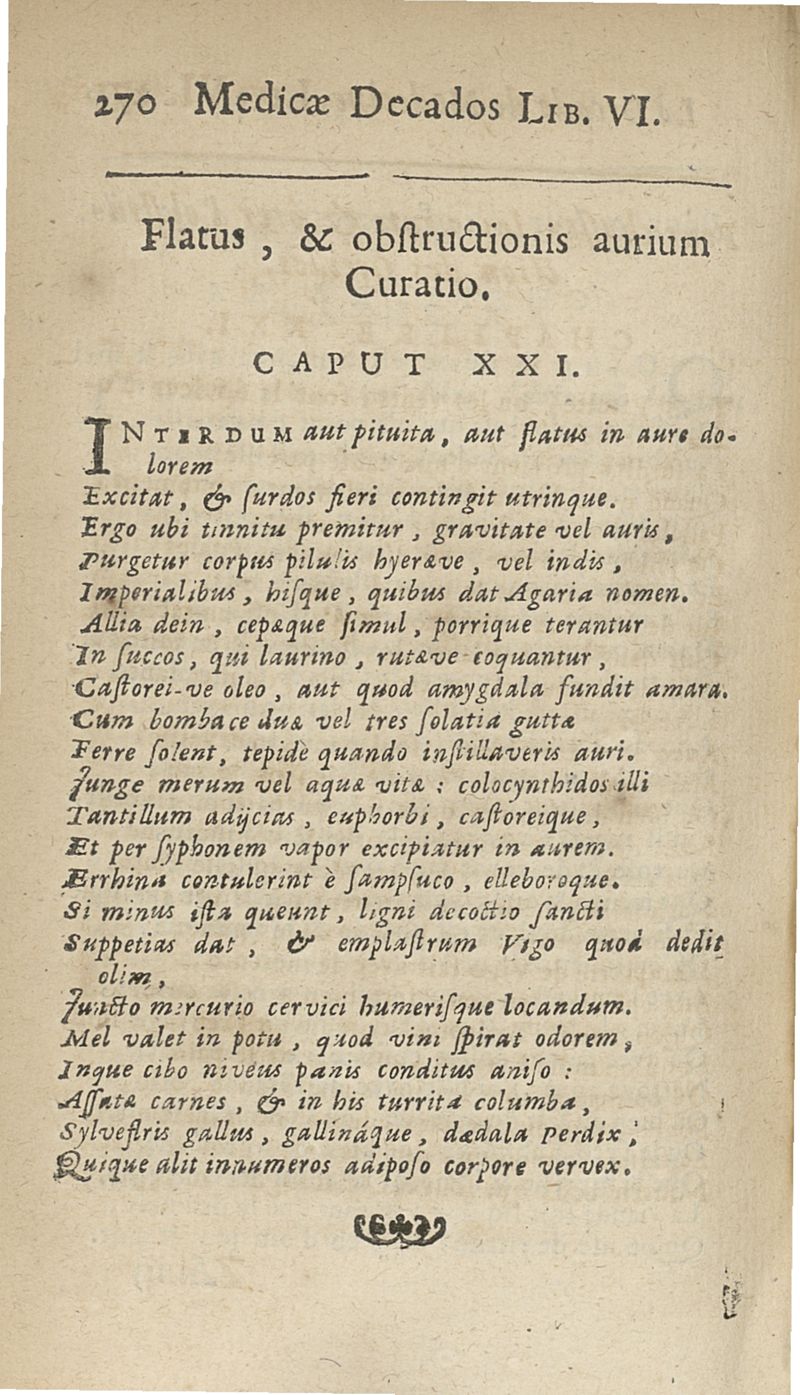 270 Medicæ Decados LIB. VI.
Flatus, & obſtructionis aurium
Curatio.
CAPUT XXI.
INTERDUM aut pituita, aut flatus in aure do-
lorem
Excitat, & ſurdos fieri contingit utrinque.
Ergo ubi tinnitu premitur, gravitate vel auris,
Purgetur corpus pilulis hyeræve, vel indis,
Imperialibus, hiſque, quibus dat Agaria nomen.
Allia dein, cepæque ſimul, porrique terantur
In ſuccos, qui laurino, rutæve coquantur,
Caſtorei-ve oleo, aut quod amygdala fundit amara.
Cum bombace duæ vel tres ſolatia guttæ
Ferre ſolent, tepidè quando inſtillaveris auri.
Junge merum vel aquæ vitæ : colocynthidos illi
Tantillum adijcias, euphorbi, caſtoreique,
Et per ſyphonem vapor excipiatur in aurem.
Errhina contulerint è ſampſuco, elleboroque.
Si minus iſta queunt, ligni decoctio ſancti
Suppetias dat, & emplaſtrum Vigo quod dedit
olim,
Juncto mercurio cervici humeriſque locandum.
Mel valet in potu, quod vini ſpirat odorem,
Inque cibo niveus panis conditus aniſo :
Aſſatæ carnes, & in his turrita columba,
Sylveſtris gallus, gallináque, dædala perdix,
Quique alit innumeros adipoſo corpore vervex.